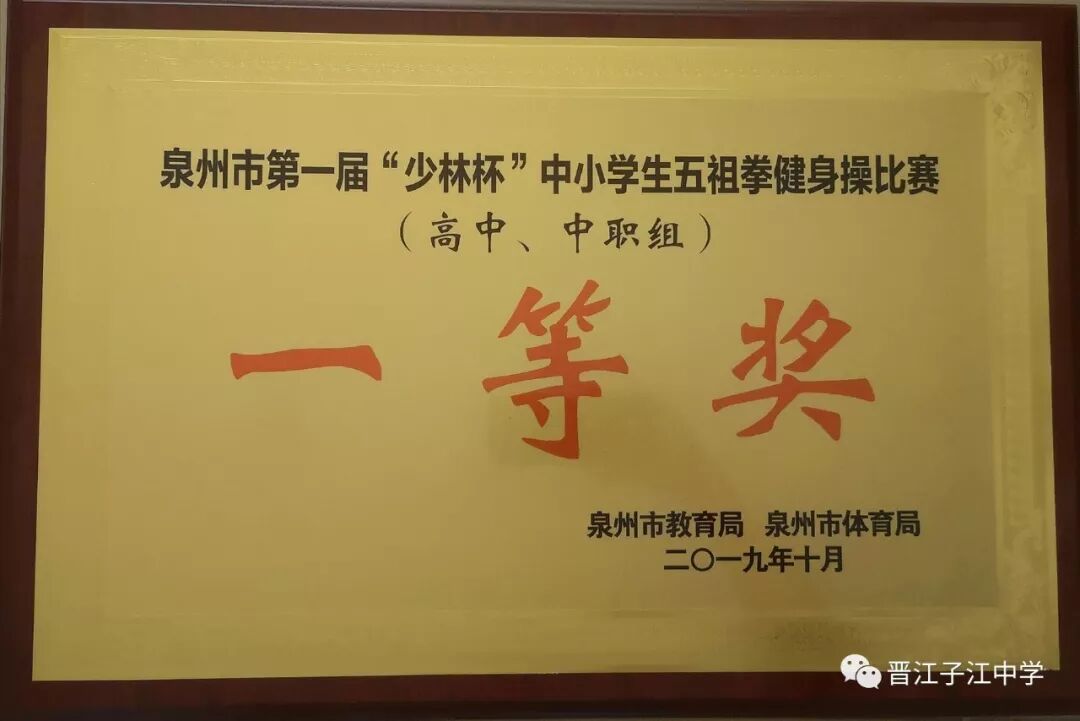 泉州市第一届“少林杯”中小学生五祖拳健身操比赛
（高中、中职组）
一等奖
泉州市教育局 泉州市体育局
二〇一九年十月
晋江子江中学